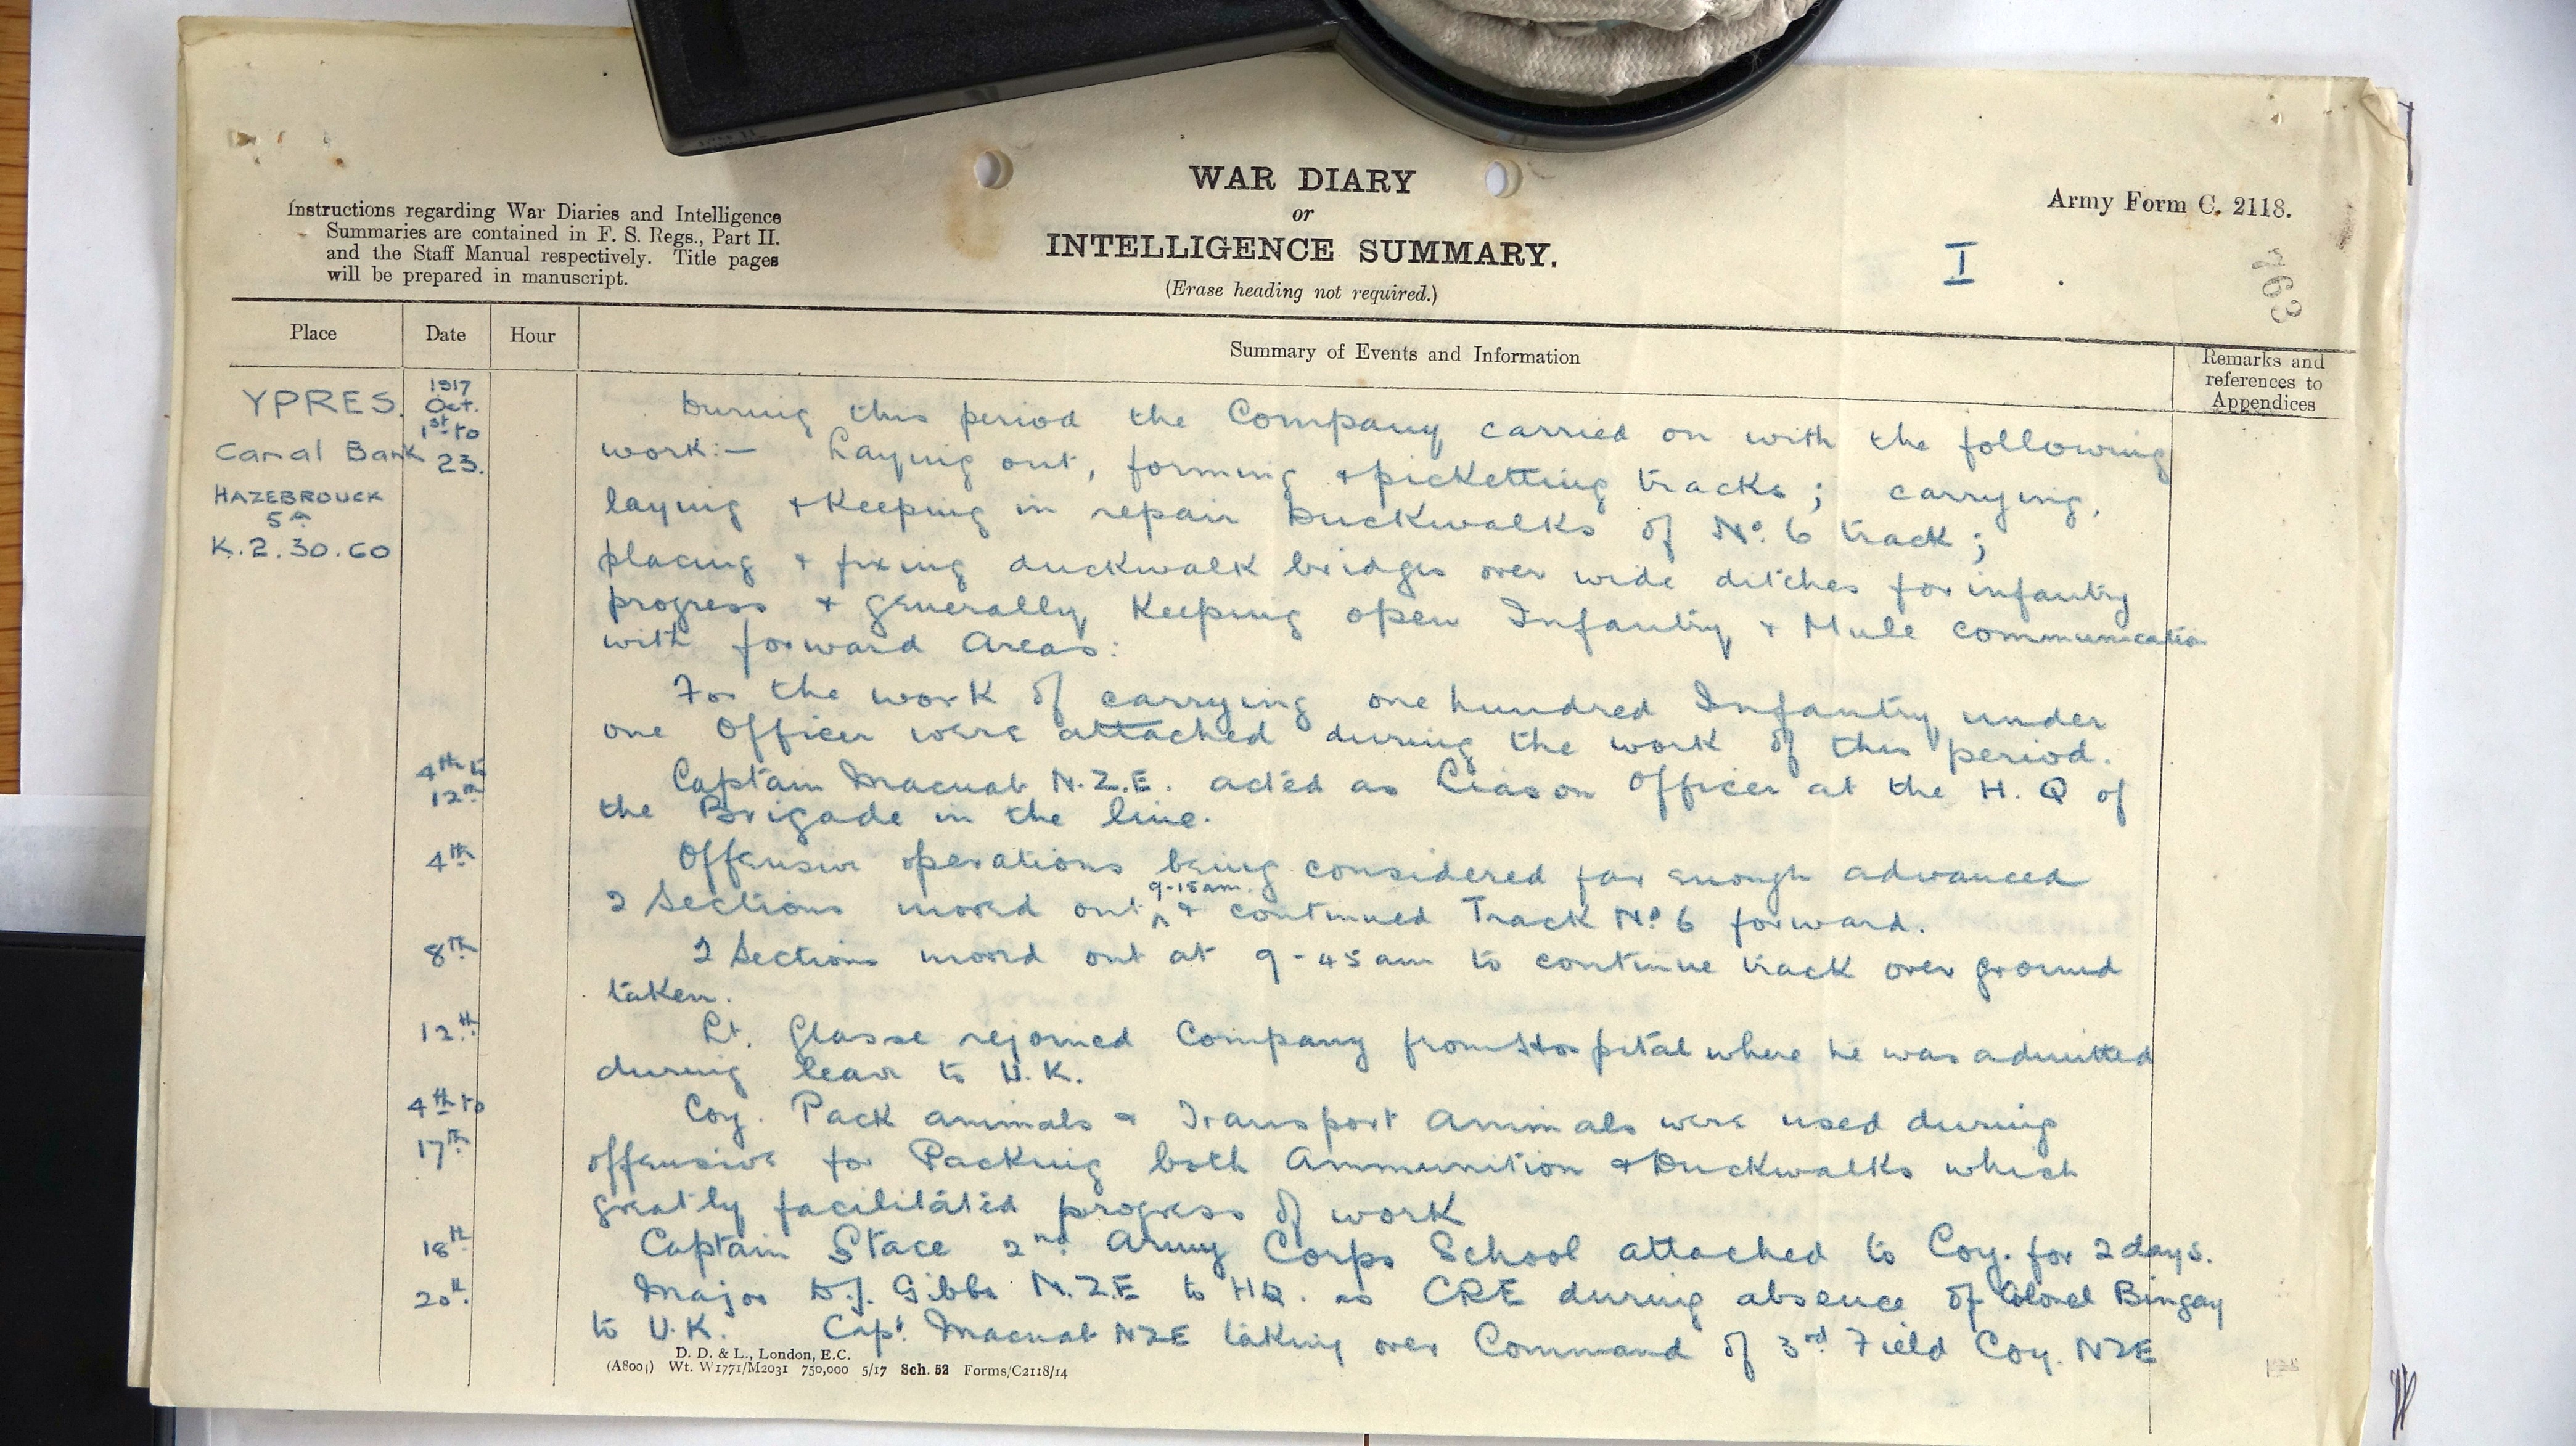 WAR DIARY
or
INTELLIGENCE SUMMARY.
(Erase heading not required.)
Instructions regarding War Diaries and Intelligence
Summaries are contained in F. S. Regs., Part II.
and the Staff Manual respectively. Title pages
will be prepared in manuscript.
Army Form C. 2118.
I
763
Place
Date
Hour
Summary of Events and Information
Remarks and
references to
Appendices
YPRES.
Canal Bank
HAZEBROUCK
5A
K.2.30.60
1917
Oct.
1st to
23.
During this period the Company carried on with the following
work:— Laying out, forming & picketting tracks; carrying,
laying & keeping in repair Duckwalks of No. 6 track;
placing & fixing duckwalk bridges over wide ditches for infantry
progress & generally keeping open Infantry & Mule communication
with forward Areas:
For the work of carrying one hundred Infantry under
one Officer were attached during the work of this period.
4th to
12th
Captain Macnab N.Z.E. acted as Liason Officer at the H.Q of
the Brigade in the line.
4th
Offensive operations being considered far enough advanced
9-15am.
2 Sections moved out & continued Track No. 6 forward.
8th
2 Sections moved out at 9-45am to continue track over ground
taken.
12th
Lt. Glasse rejoined Company from Hospital where he was admitted
during leave to U.K.
4th to
17th
Coy. Pack animals & Transport Animals were used during
offensive for Packing both Ammunition & Duckwalks which
greatly facilitated progress of work
18th
Captain Stace 2nd Army Corps School attached to Coy. for 2 days.
20th
Major D.J. Gibbs N.Z.E to HQ. as CRE during absence of Colonel Bingay
to U.K. Capt. Macnab NZE taking over Command of 3rd Field Coy. NZE
D. D. & L., London, E.C.
(A8001) Wt. W1771/M2031 750,000 5/17 Sch. 52 Forms/C2118/14